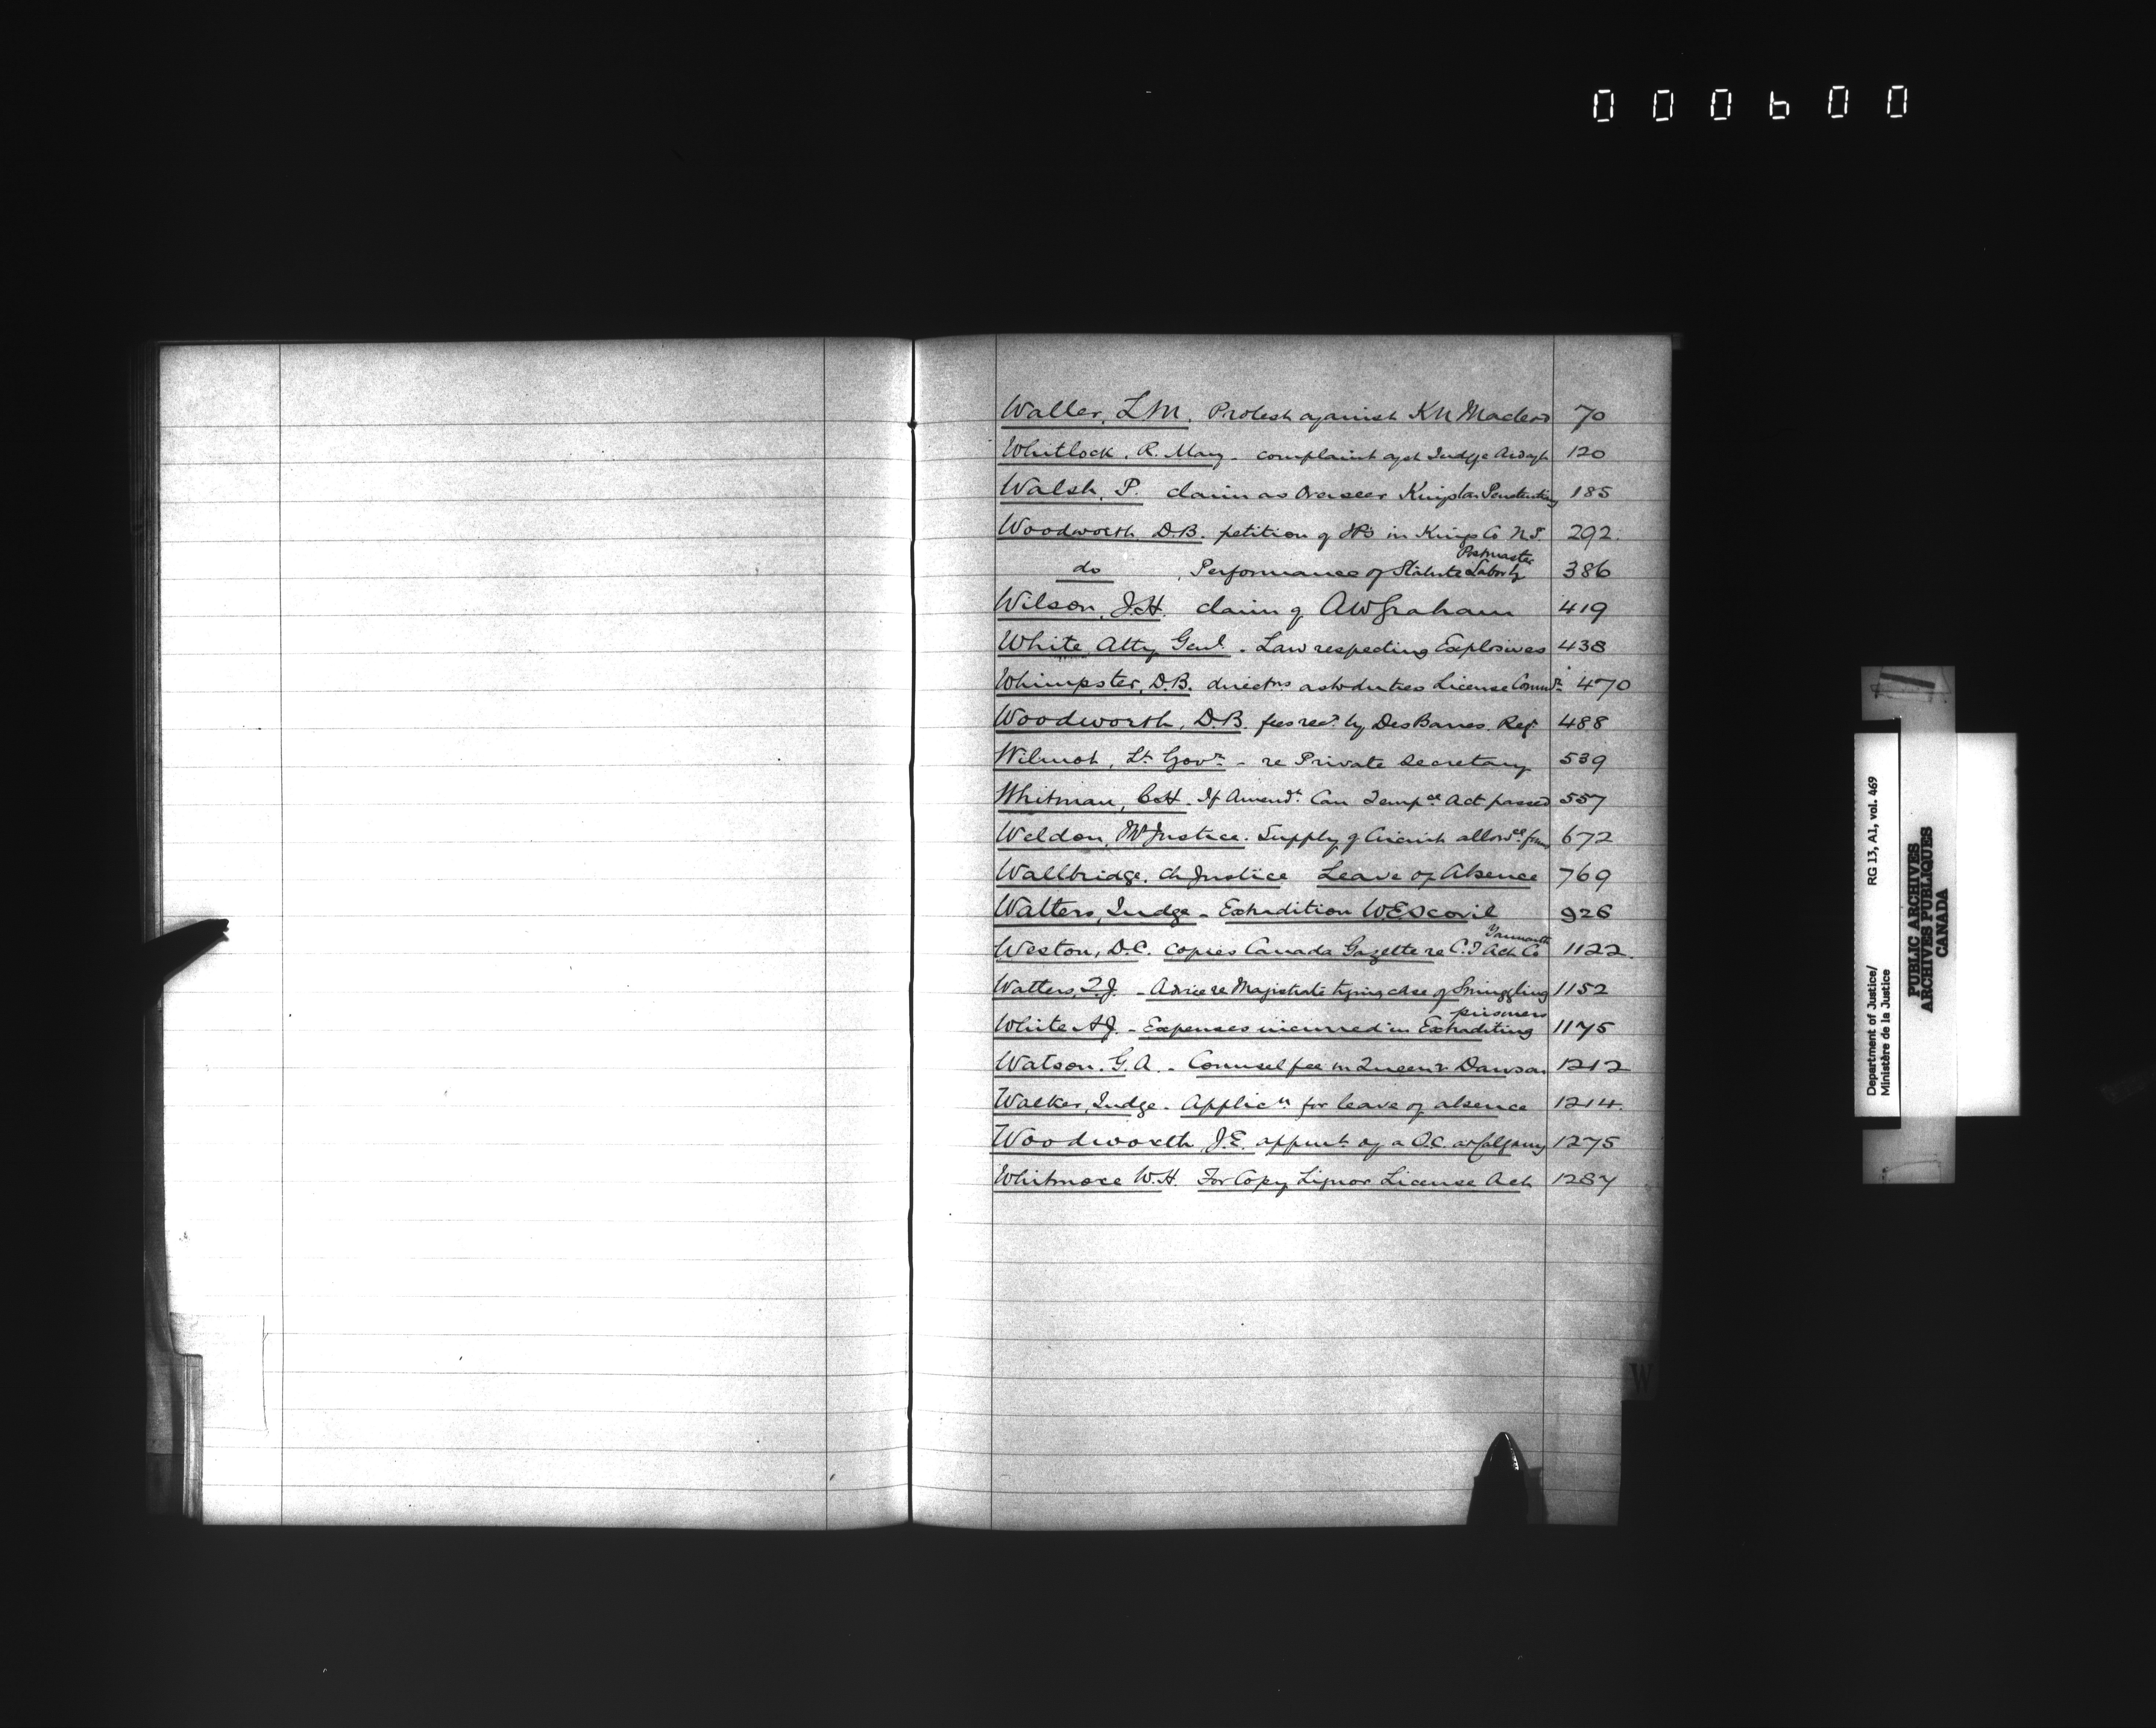 000600
Waller, L.M. Protest against KN Macleod 70
Whitlock, R. Mary - complaint agst Judge Ardagh 120
Walsh, P. claim as Overseer Kingston Penitentiary 185
Woodworth D.B. petition of JPs in Kings Co N.S. 292
Postmaster
do , Performance of Statute Labor by 386
Wilson, J.H. claim of AW Graham 419
White Atty Genl - Law respecting Explosives 438
Whimpster, D.B. directns as to duties License Commrs 470
Woodworth, D.B. fees recd by DesBarres, Regr 488
Wilmot, Lt Govr - re Private Secretary 539
Whitman, C.H. If Amendt Can Tempce Act passed 557
Weldon, Mr Justice. Supply of Circuit allowce 672
Wallbridge, Ch Justice Leave of Absence 769
Watters, Judge - Extradition W.E. Scovil 926
Yarmouth
Weston, D.C. copies Canada Gazette re C.T Act Co 1122.
Watters, T.J. - Advice re Magistrate trying case of Smuggling 1152
prisoners
White A.J. - Expenses incurred in Extraditing 1175
Watson. G.A. - Counsel fee in Queen v. Dawson 1212
Walker, Judge - Applicn for leave of absence 1214.
Woodworth J.E. appmt of a Q.C. at Calgary 1275
Whitmore W.H. For Copy Liquor License Act 1287
W
Department of Justice/ RG 13, A1, vol. 469
Ministère de la Justice
PUBLIC ARCHIVES
ARCHIVES PUBLIQUES
CANADA